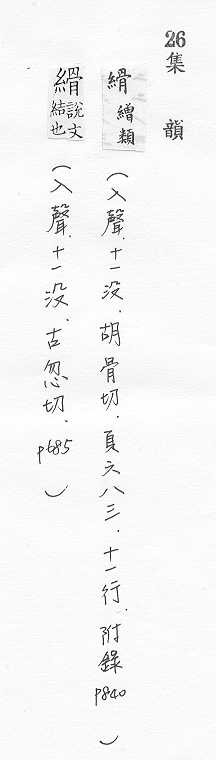 26
集韻
縎繒類（入聲．十一没．胡骨切．頁六八三．十一行．附錄p840）
縎說文結也（入聲．十一没．古忽切．p685）